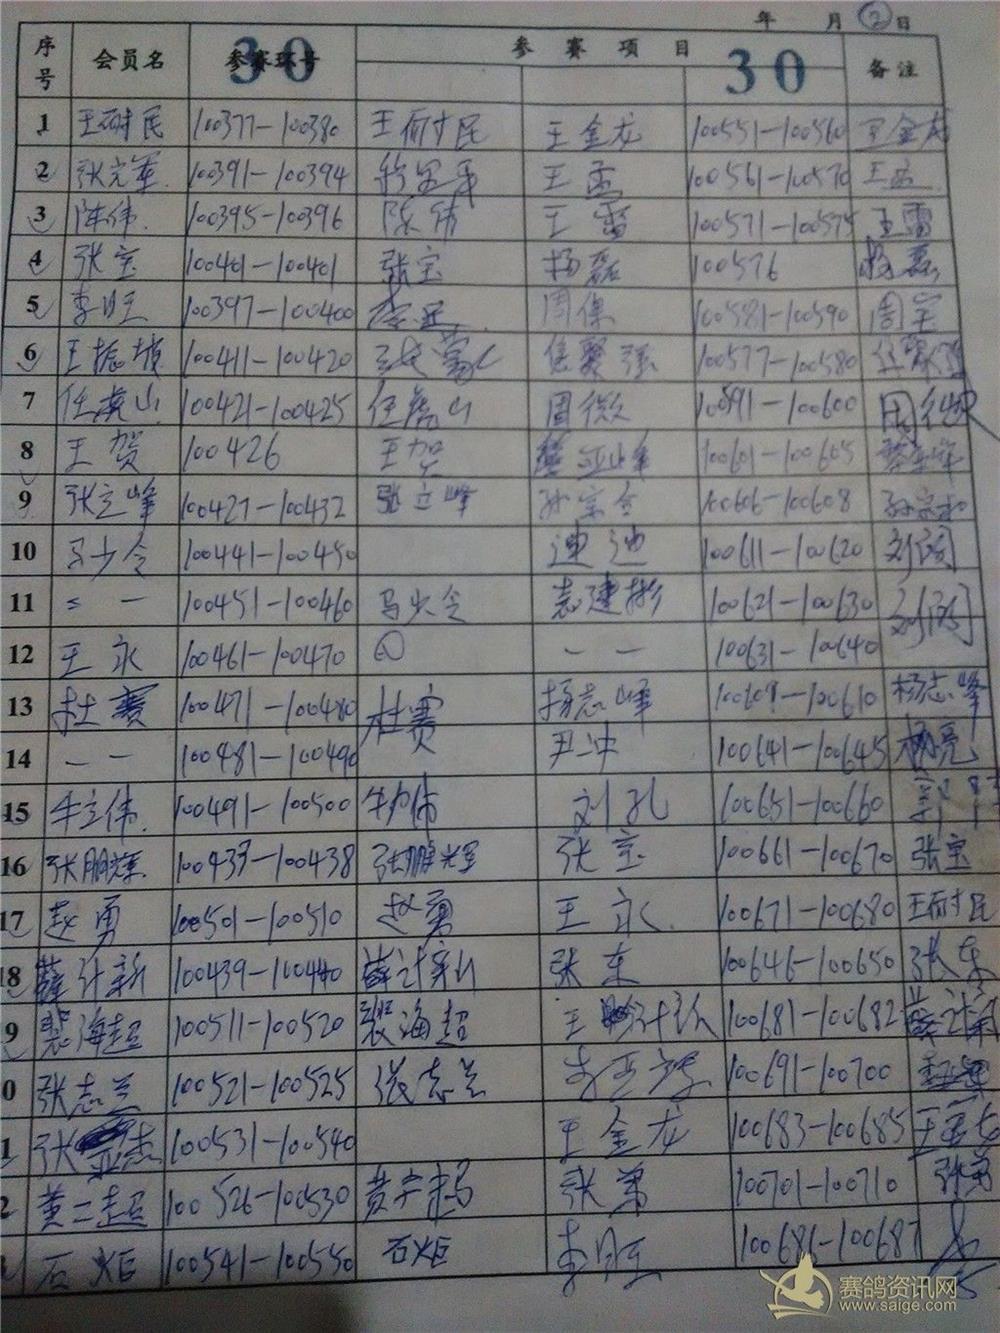 年 月 2 日
序号 会员名 参赛环号 30 参赛项目 30 备注
1 王耐民 100377-100380 王耐民 王金龙 100551-100560 王金龙
2 张 100391-100394 王孟 100561-100570 王孟
3 陈伟 100395-100396 陈伟 王雷 100571-100575 王雷
4 张宝 100401-100401 张宝 杨磊 100576 杨磊
5 李旺 100397-100400 周保 100581-100590 周
6 王振 100411-100420 100577-100580
7 任虎山 100421-100425 任虎山 周微 100591-100600 周
8 王贺 100426 王贺 亚峰 100601-100605
9 张立峰 100427-100432 张立峰 孙宗 100606-100608 孙宗
10 马少令 100441-100450 迪迪 100611-100620 刘
11 - 100451-100460 马少令 袁建彬 100621-100630 刘
12 王永 100461-100470 一 一 100631-100640
13 杜赛 100471-100480 杜赛 杨志峰 100609-100610 杨志峰
14 一 一 100481-100490 尹冲 100641-100645 杨亮
15 牛立伟 100491-100500 牛立伟 刘孔 100651-100660
16 张鹏辉 100437-100438 张鹏辉 张宝 100661-100670 张宝
17 赵勇 100501-100510 赵勇 王永 100671-100680 王耐民
18 薛计新 100439-100440 薛计新 张东 100646-100650 张东
9 裴海超 100511-100520 裴海超 王 100681-100682 薛计新
0 张志兰 100521-100525 张志兰 李亚 100691-100700
1 张 杰 100531-100540 王金龙 100683-100685 王金龙
2 黄二超 100526-100530 黄 张勇 100701-100710 张勇
石炬 100541-100550 石炬 李旺 100686-100687
赛鸽资讯网
www.saige.com